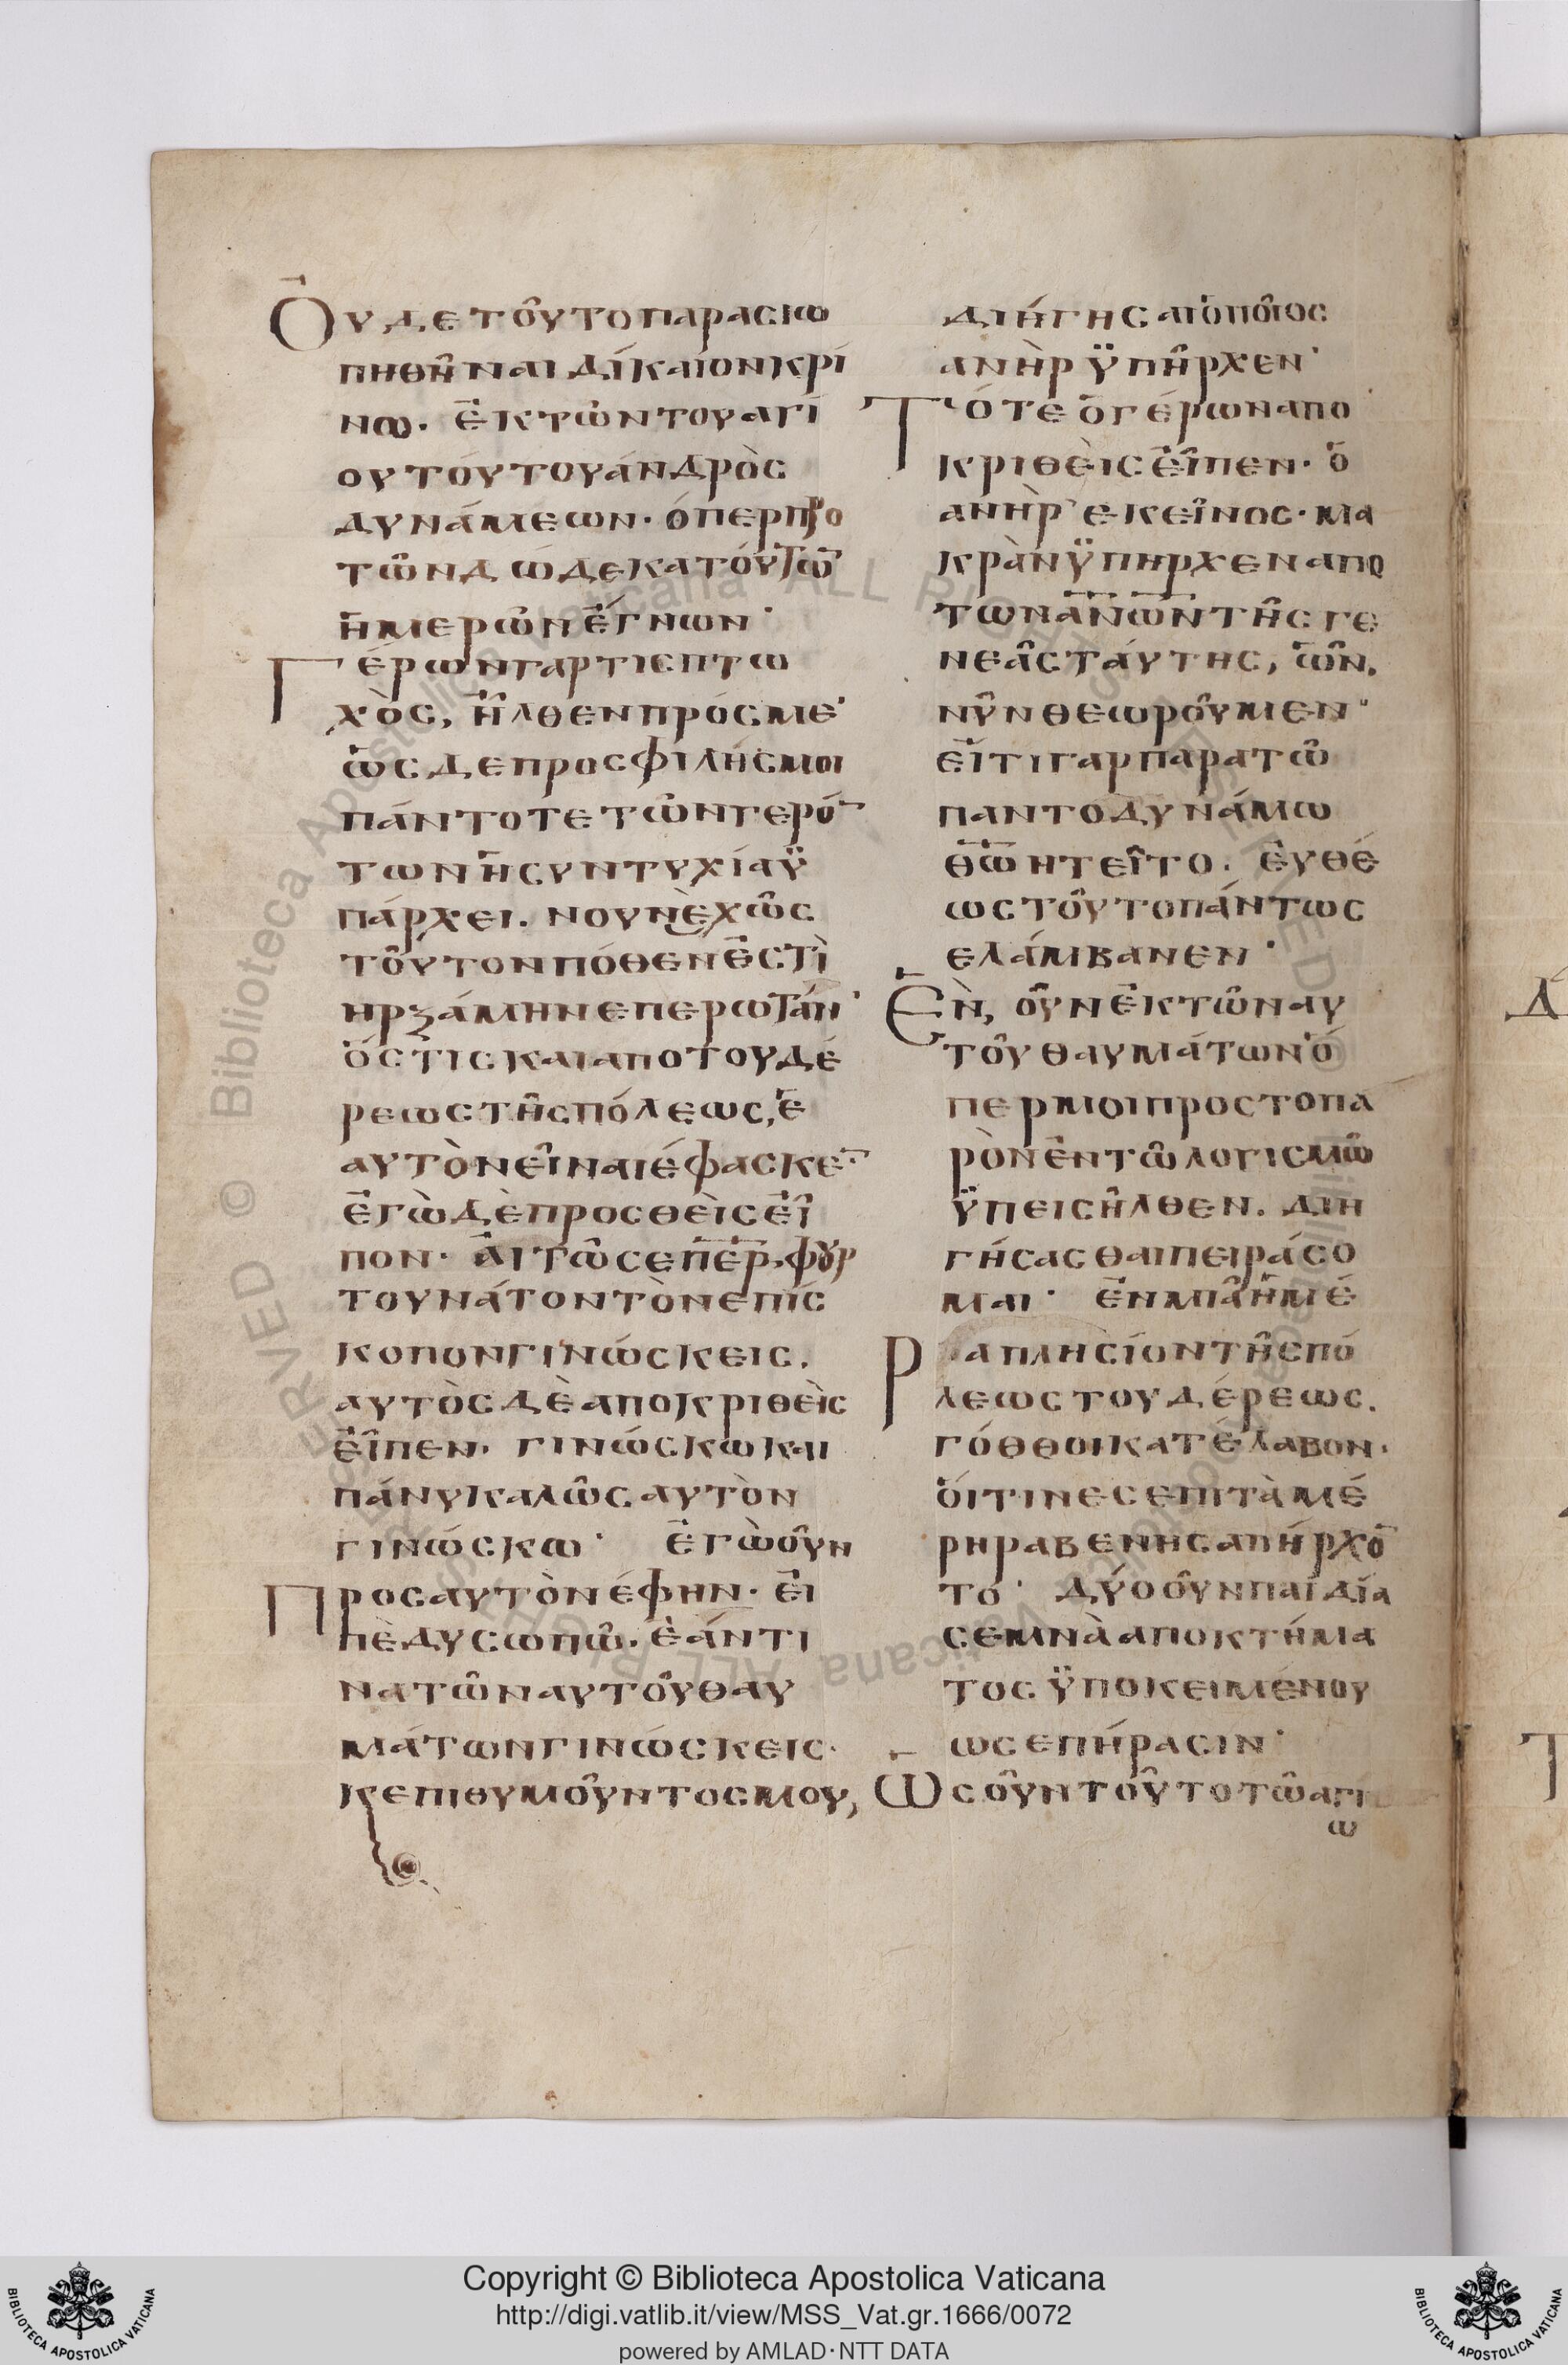 Ὀυδε τοῦτο παρασιω
πηθῆναι δίκαίον κρί
νω. ἐκ τῶν του αγί
ου τούτου ἀνδρὸς
δυνάμεων· ὅπερ πρὸ
τῶν δώδεκα τούτω
ἡμερῶν ἔγνων·
Γέρων γαρ τις πτω
χὸς, ἦλθεν πρός με·
ὡς δε προσφιλής μοι
πάντοτε τῶν γερό
των ἡ συντυχία ϋ
πάρχει. νουνεχῶς
τοῦτον πόθεν ἐστὶ
ηρξάμην επερωτάν·
ὅστις και απο του δέ
ρεως τῆς πόλεως, ἑ
αυτὸν εἶναι έφασκε·
ἐγὼ δὲ προσθεὶς εἶ
πον· ἀιτῶ σε περ, φουρ
τουνάτον τὸν επίς
κοπον γινώσκεις.
αυτὸς δὲ αποκριθεὶς
εἶπεν· γινώσκω και
πάνυ καλῶς αυτὸν
γινώσκω· ἐγὼ οῦν
Προς αυτὸν έφην· ἐι
πὲ δυσωπῶ. ἐάν τι
να τῶν αυτοῦ θαυ
μάτων γινώσκεις·
κ επιθυμοῦντός μου,
διήγησαι ὁποῖος
ανὴρ ϋπῆρχεν·
Τότε ὁ γέρων απο
κριθὲις εἶπεν· ὁ
ανὴρ εκεῖνος· μα
κρὰν ϋπηρχεν απο
των ανων τῆς γε
νεᾶς τάυτης, ὧν,
νῦν θεωροῦμεν·
εἴτι γαρ παρα τῶ
παντοδυνάμω
θω ητεῖτο. ἐυθέ
ως τοῦτο πάντως
ελάμβανεν·
Ἓν, οῦν ἐκ τῶν αυ
τοῦ θαυμάτων ὅ
περ μοι προς το πα
ρὸν ἐν τῶ λογισμῶ
ϋπεισῆλθεν. διη
γήσασθαι πειράσο
μαι· ἐν μιᾶ ἡμέ
Ρα πλησίον τῆς πό
λεως του δέρεως.
γόθθοι κατέλαβον·
ὅιτινες επι τὰ μέ
ρη ραβεννης απήρχο
το· δύο οῦν παίδία
σεμνὰ απο κτήμα
τος ϋποκειμένου
ως επήρασιν·
Ὡς οῦν τοῦτο τῶ αγί
ω
Copyright © Biblioteca Apostolica Vaticana
http://digi.vatlib.it/view/MSS_Vat.gr.1666/0072
powered by AMLAD·NTT DATA